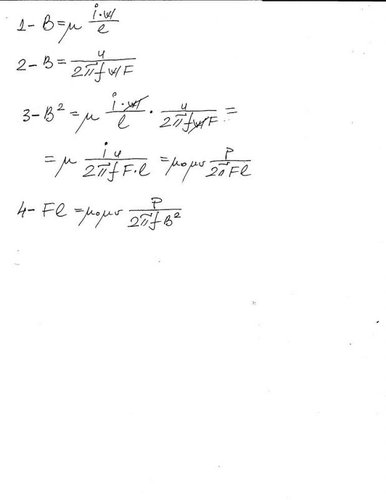 1- B = μ i·w/l
2- B = u/2πfwF
3- B² = μ i·w/l · u/2πfwF =
= μ iu/2πfF·l = μ₀μr P/2πFl
4- Fl = μ₀μr P/2πfB²